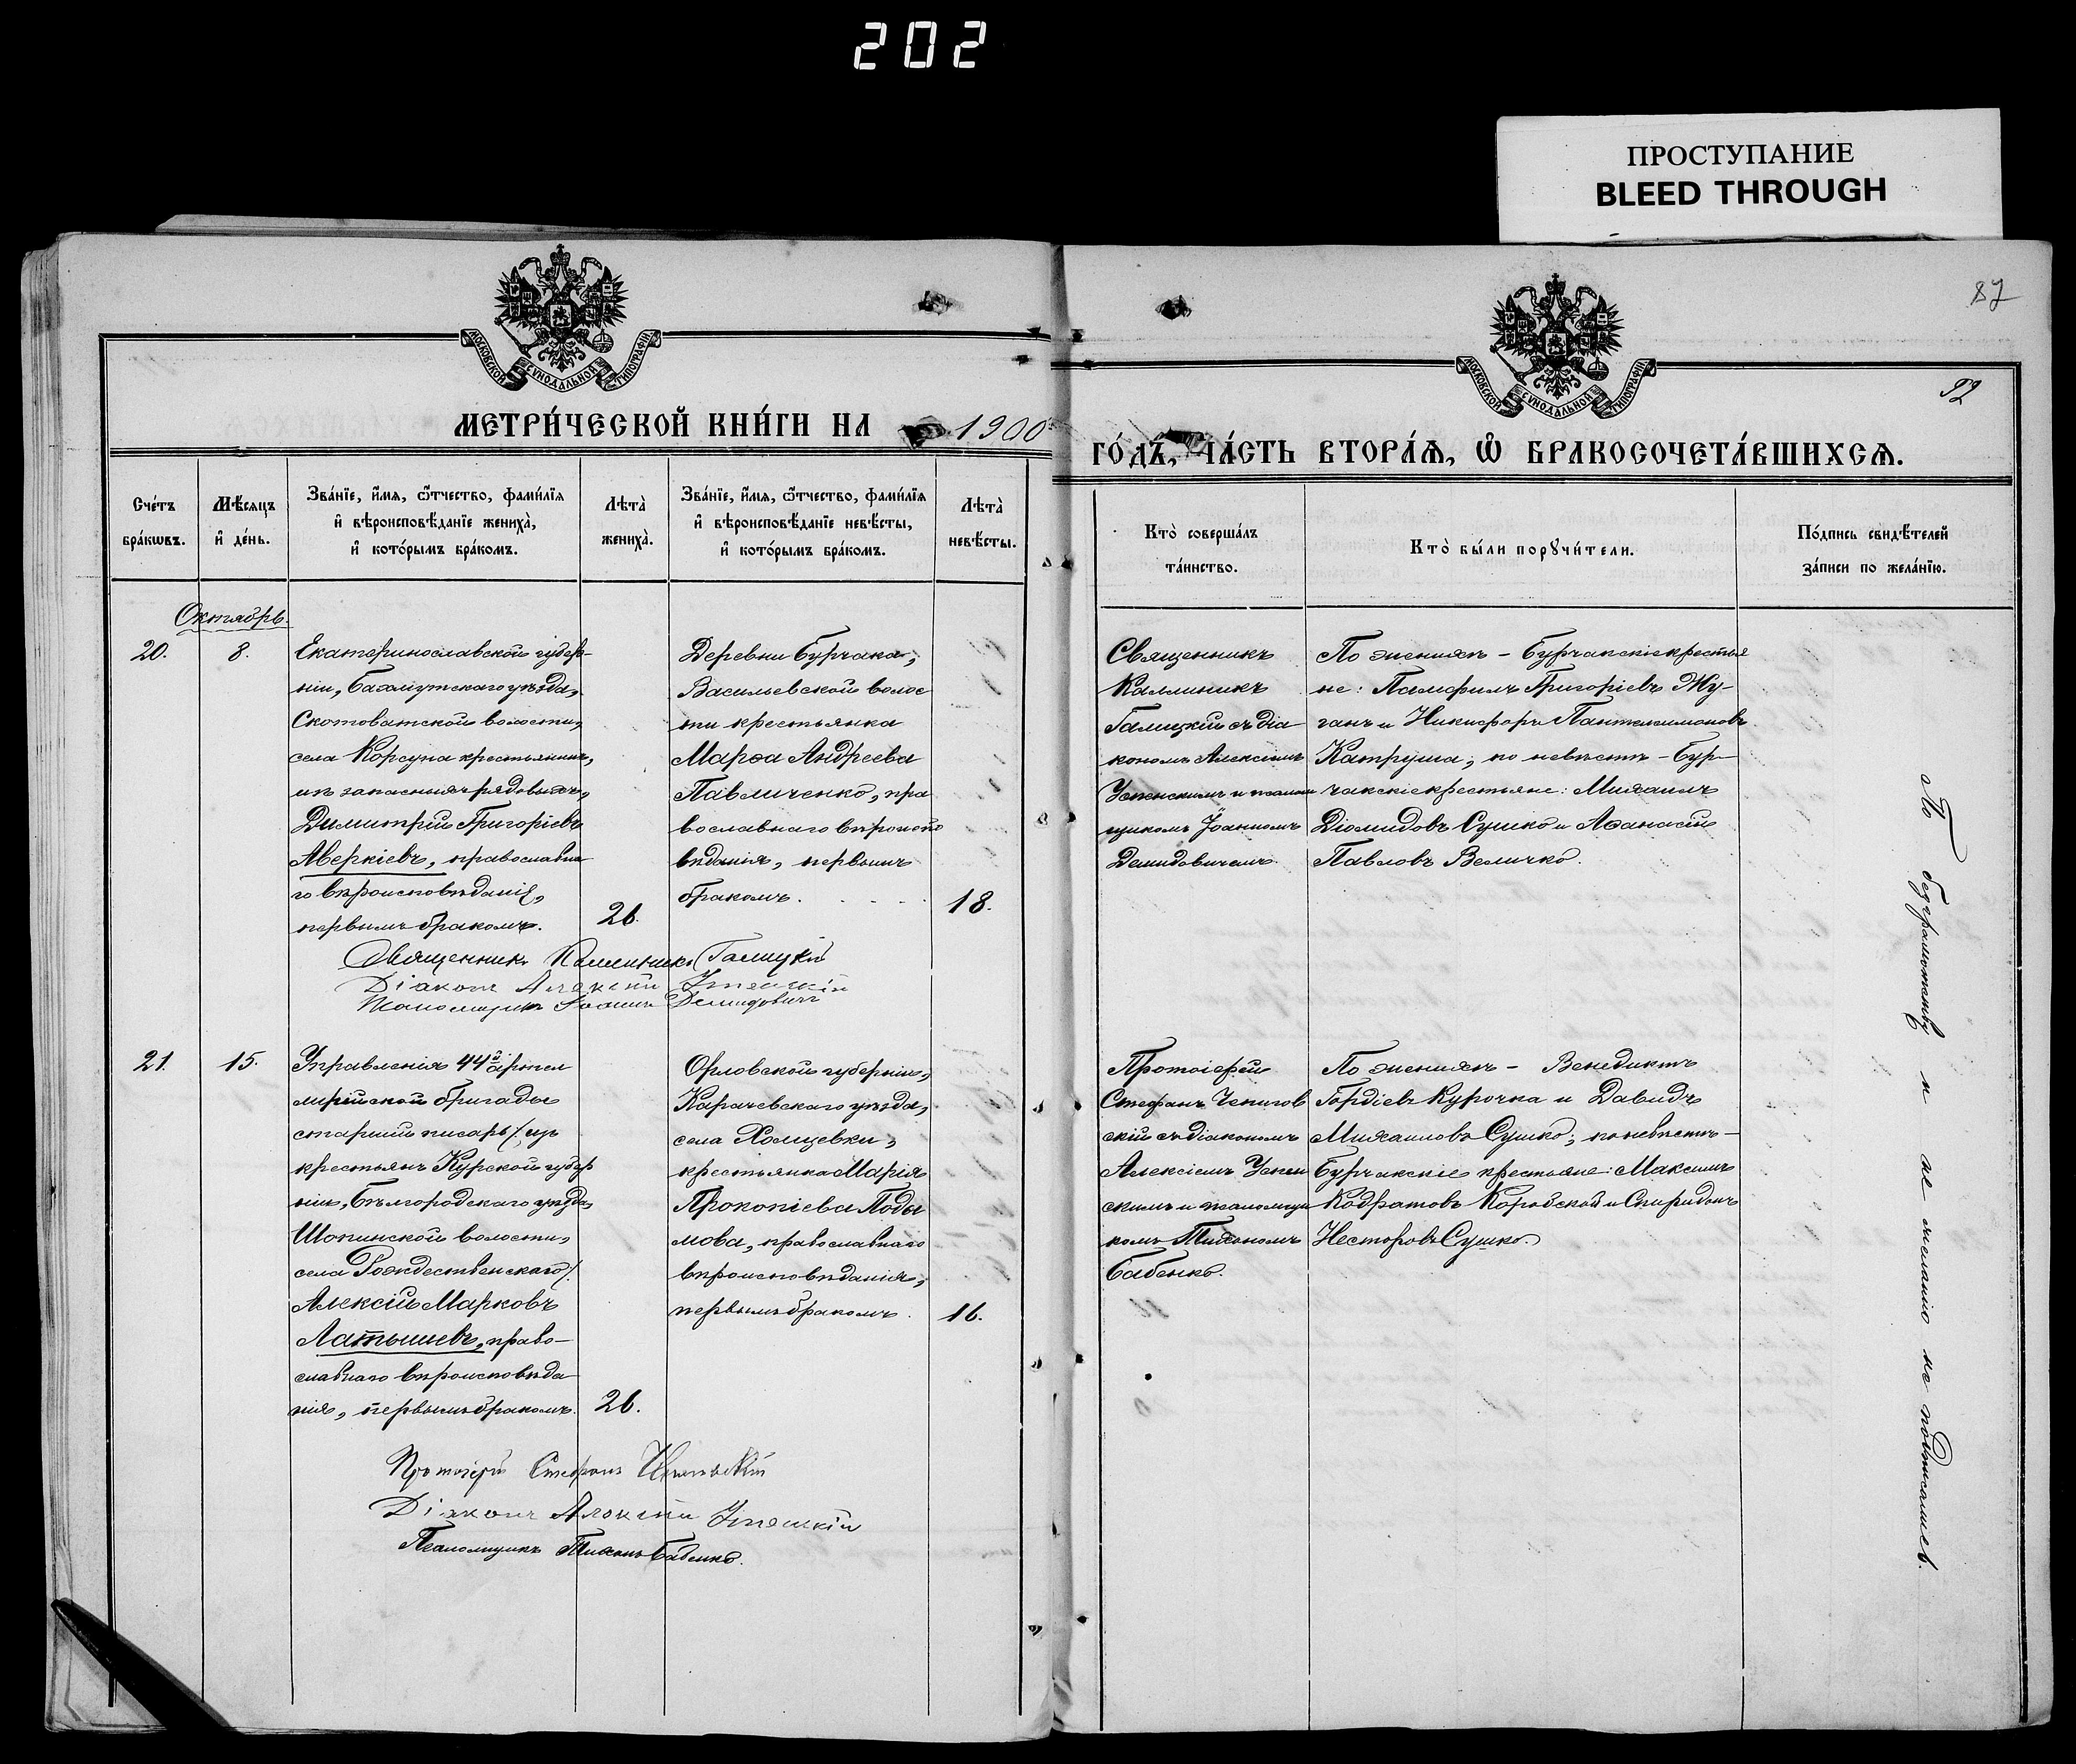 202
ПРОСТУПАНИЕ
BLEED THROUGH
87
92
МОСКОВСКОЙ СѴНОДАЛЬНОЙ ТИПОГРАФІИ
МОСКОВСКОЙ СѴНОДАЛЬНОЙ ТИПОГРАФІИ
МЕТРИ́ЧЕСКОЙ КНИ́ГИ НА 1900
ГО́ДЪ, ЧА́СТЬ ВТОРА́Ѧ, Ѡ҆ БРАКОСОЧЕТА́ВШИХСѦ.
Сче́тъ
бра́кѡвъ.
Мѣ́сяцъ
и҆ де́нь.
Зва́нїе, и҆́мѧ, ѻ҆́тчество, фами́лїѧ
и҆ вѣроисповѣ́данїе жениха̀,
и҆ кото́рымъ бра́комъ.
Лѣта̀
жениха̀.
Зва́нїе, и҆́мѧ, ѻ҆́тчество, фами́лїѧ
и҆ вѣроисповѣ́данїе невѣ́сты,
и҆ кото́рымъ бра́комъ.
Лѣта̀
невѣ́сты.
Кто̀ соверша́лъ
та́инство.
Кто̀ бы́ли порꙋчи́тели.
По́дпись свидѣ́телей
за́писи по жела́нїю.
Октябрь.
20.
8.
Екатеринославской губер-
ніи, Бахмутскаго уѣзда,
Скотоватской волости,
села Корсуна крестьянинъ,
изъ запасныхъ рядовыхъ,
Димитрій Григоріевъ
Аверкіевъ, православна
го вѣроисповѣданія,
первымъ бракомъ.
26.
Деревни Бурчака,
Васильевской волос
ти крестьянка
Марѳа Андреева
Павличенко, пра
вославнаго вѣроиспо
вѣданія, первымъ
бракомъ.
18.
Священникъ
Каллиникъ
Галицкій съ діа
кономъ Алексіемъ
Успенскимъ и псалом
щикомъ Іоанномъ
Демидовичемъ.
По женихѣ – Бурчакскіе крестья
не: Памфилъ Григоріевъ Жу-
ганъ и Никифоръ Пантелеимоновъ
Катруша; по невѣстѣ – Бур-
чакскіе крестьяне: Михаилъ
Діомидовъ Сушко и Аѳанасій
Павловъ Величко.
Священникъ Каллиникъ Галицкій
Діаконъ Алексій Успенскій
Псаломщикъ Іоаннъ Демидовичъ
21.
15.
Управленія 44й артил
лирійской бригады
старшій писарь /: изъ
крестьянъ Курской губер
ніи, Бѣлгородскаго уѣзда
Шопинской волости,
села Рождественскаго /:
Алексій Марковъ
Латышевъ, право-
славнаго вѣроисповѣда
нія, первымъ бракомъ.
26.
Орловской губерніи,
Карачевскаго уѣзда,
села Холщевки,
крестьянка Марія
Прокопіева Поды
мова, православнаго
вѣроисповѣданія,
первымъ бракомъ.
16.
Протоіерей
Стефанъ Чепигов
скій съ діакономъ
Алексіемъ Успен
скимъ и псаломщи
комъ Тихономъ
Бабенко.
По женихѣ – Венедиктъ
Гордіевъ Курочка и Давидъ
Михаиловъ Сушко; по невѣстѣ –
Бурчакскіе крестьяне: Максимъ
Кодратовъ Коробской и Спиридонъ
Несторовъ Сушко.
Протоіерей Стефанъ
Діаконъ Алексій Успенскій
Псаломщикъ Тихонъ Бабенко.
По безграмотству и не желанію не подписались.